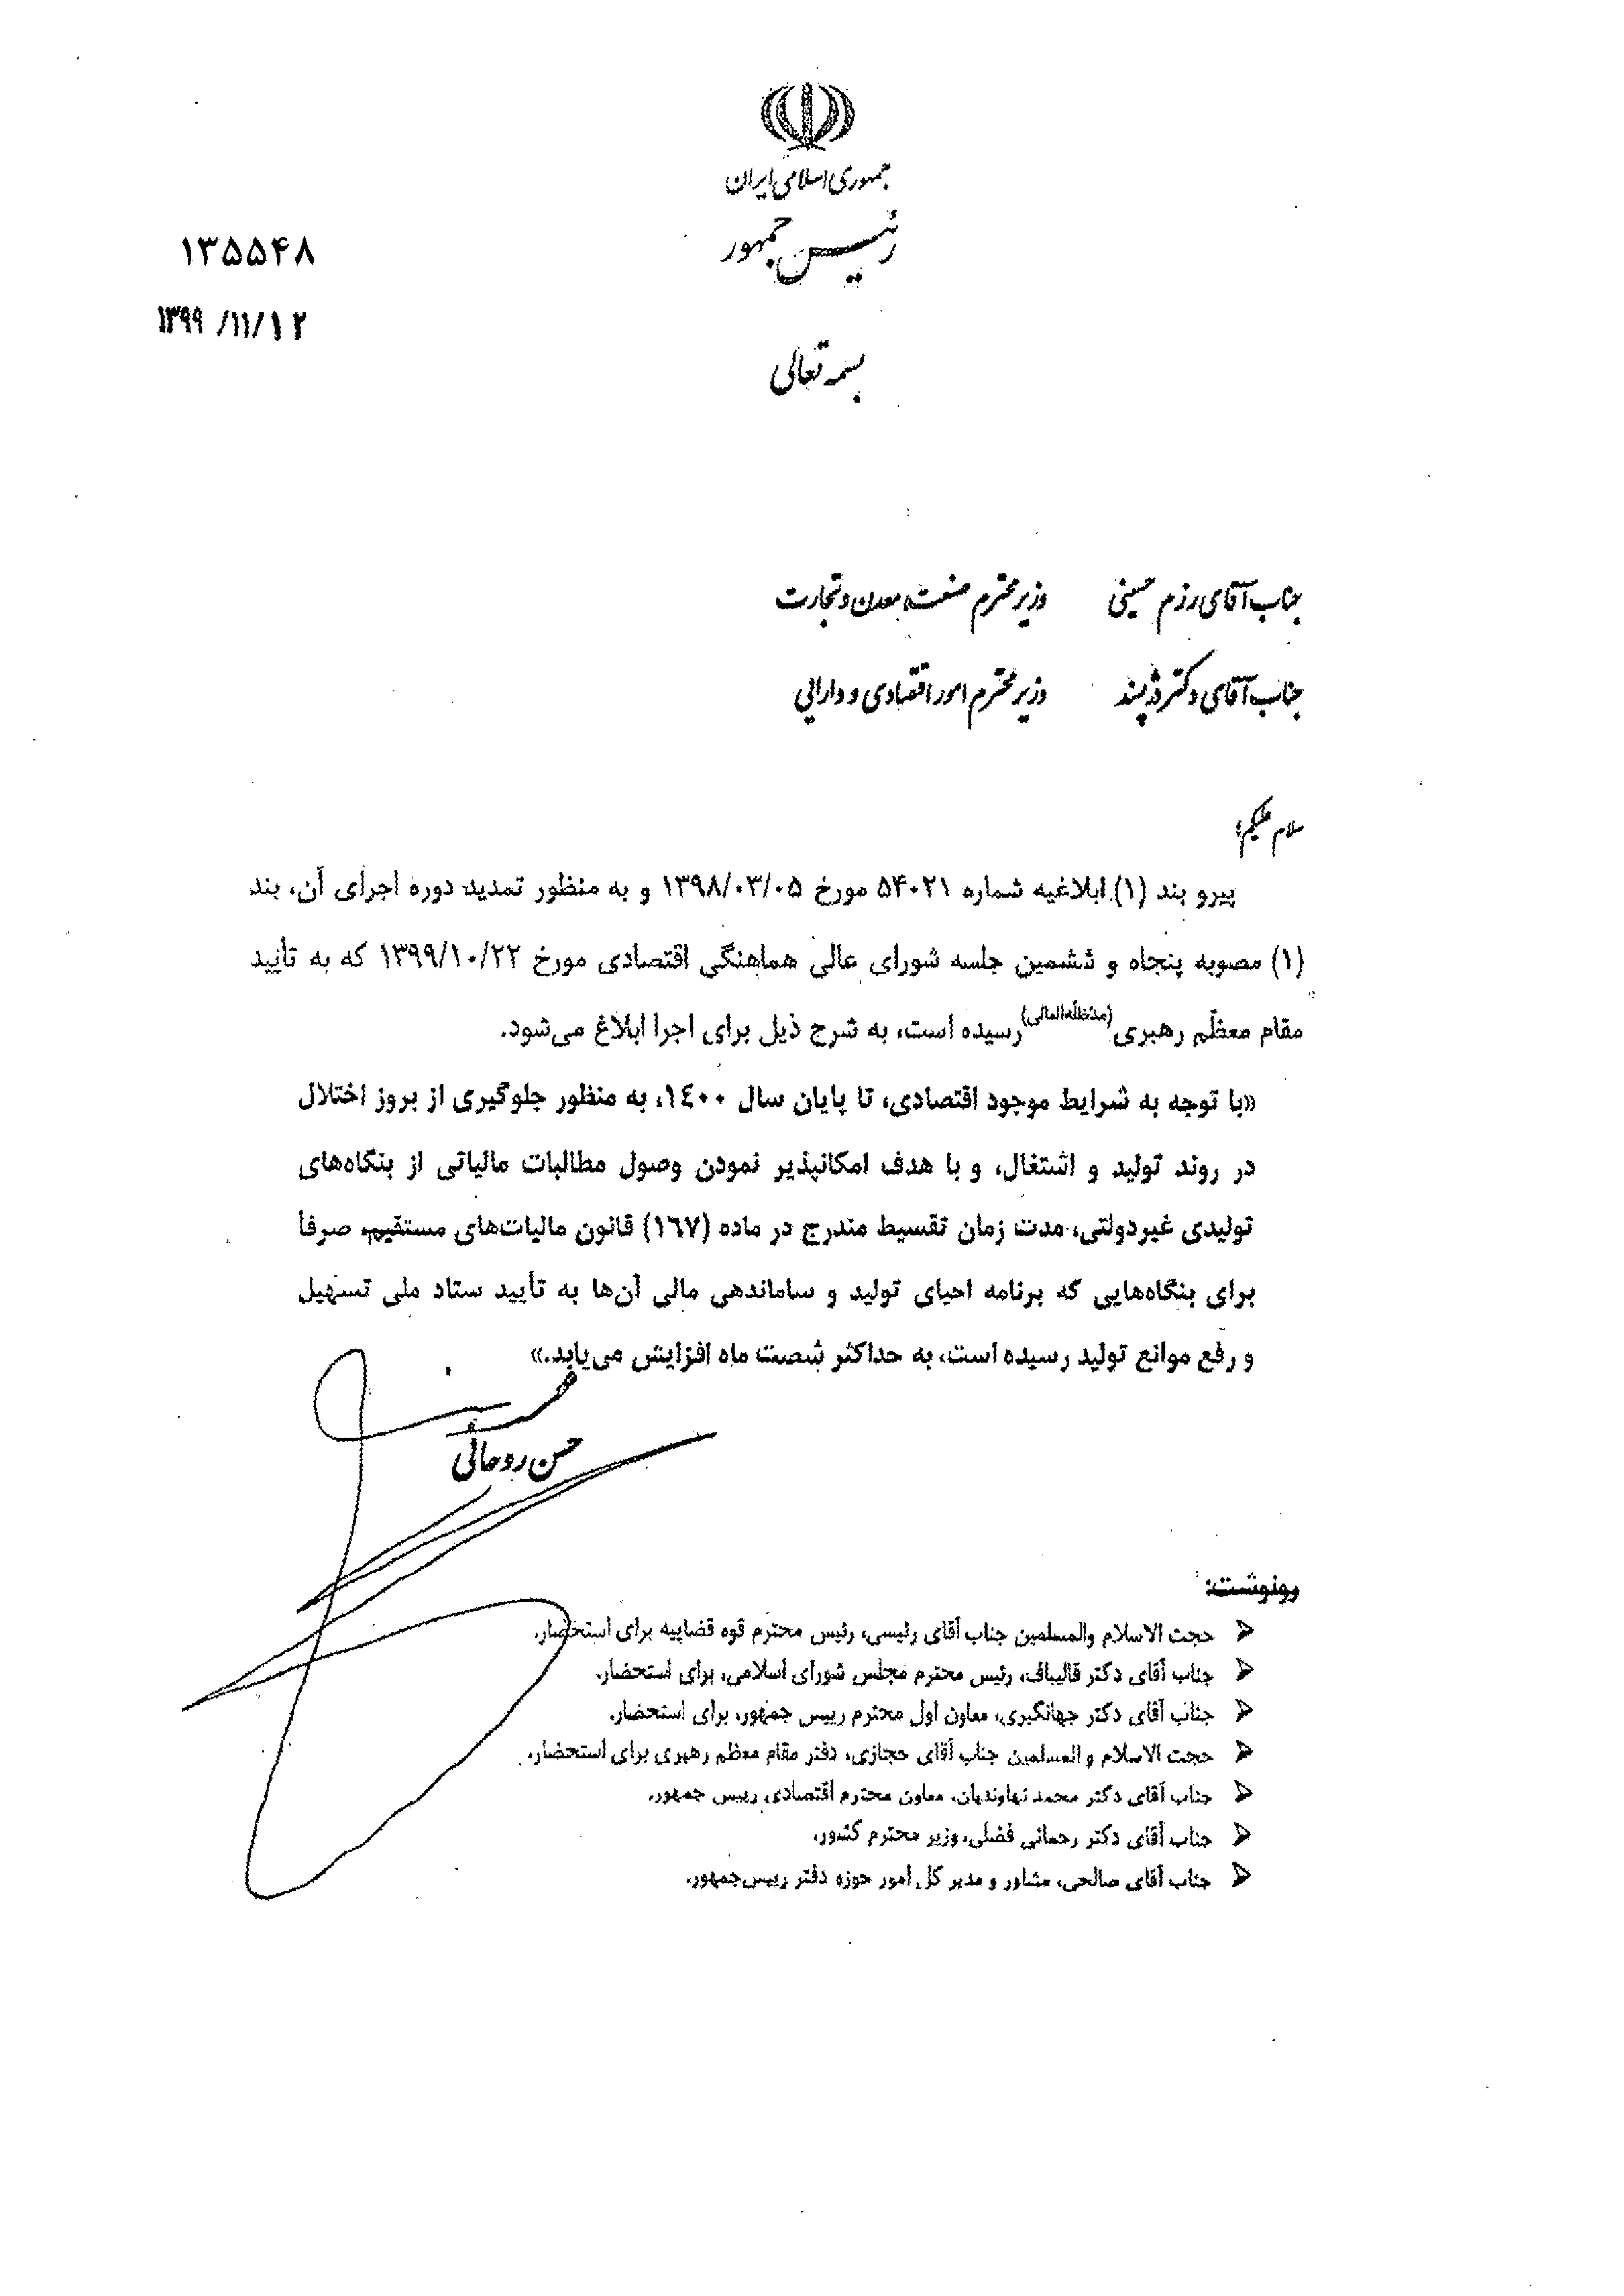 جمهوری اسلامی ایران
رئیس جمهور
۱۳۵۵۴۸
۱۳۹۹/۱۱/۱۲
بسمه تعالی
جناب آقای رزم حسینی وزیر محترم صنعت، معدن و تجارت
جناب آقای دکتر دژپسند وزیر محترم امور اقتصادی و دارایی
سلام علیکم؛
پیرو بند (۱) ابلاغیه شماره ۵۴۰۲۱ مورخ ۱۳۹۸/۰۳/۰۵ و به منظور تمدید دوره اجرای آن، بند
(۱) مصوبه پنجاه و ششمین جلسه شورای عالی هماهنگی اقتصادی مورخ ۱۳۹۹/۱۰/۲۲ که به تأیید
مقام معظّم رهبری (مدّظلّه‌العالی) رسیده است، به شرح ذیل برای اجرا ابلاغ می‌شود.
«با توجه به شرایط موجود اقتصادی، تا پایان سال ۱٤۰۰، به منظور جلوگیری از بروز اختلال
در روند تولید و اشتغال، و با هدف امکانپذیر نمودن وصول مطالبات مالیاتی از بنگاه‌های
تولیدی غیردولتی، مدت زمان تقسیط مندرج در ماده (۱٦۷) قانون مالیات‌های مستقیم، صرفا
برای بنگاه‌هایی که برنامه احیای تولید و ساماندهی مالی آن‌ها به تأیید ستاد ملی تسهیل
و رفع موانع تولید رسیده است، به حداکثر شصت ماه افزایش می‌یابد.»
حسن روحانی
رونوشت:
حجت الاسلام والمسلمین جناب آقای رئیسی، رئیس محترم قوه قضاییه برای استحضار.
جناب آقای دکتر قالیباف، رئیس محترم مجلس شورای اسلامی، برای استحضار.
جناب آقای دکتر جهانگیری، معاون اول محترم رییس جمهور، برای استحضار.
حجت الاسلام و المسلمین جناب آقای حجازی، دفتر مقام معظم رهبری برای استحضار.
جناب آقای دکتر محمد نهاوندیان، معاون محترم اقتصادی رییس جمهور.
جناب آقای دکتر رحمانی فضلی، وزیر محترم کشور.
جناب آقای صالحی، مشاور و مدیر کل امور حوزه دفتر رییس‌جمهور.